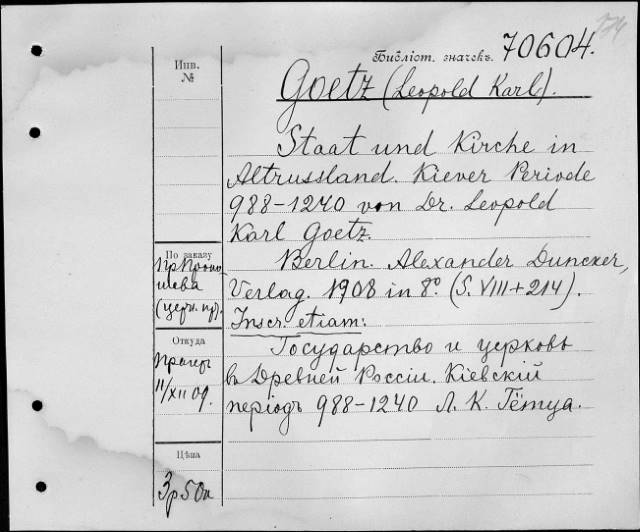 Библіот. значекъ. 70604.
Goetz (Leopold Karl).
Staat und Kirche in
Altrussland. Kiever Periode
988-1240 von Dr. Leopold
Karl Goetz.
Berlin. Alexander Duncker,
Verlag. 1908 in 8º. (S. VIII+214).
Inscr. etiam:
Государство и церковь
въ Древней Россіи. Кіевскій
періодъ 988-1240 Л. К. Гётца.
Инв.
№
По заказу
шева
(церк. пр.).
Откуда
11/XII 09.
Цѣна
3р 50к